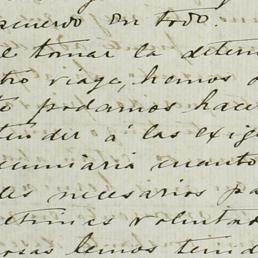 acuerdo en todo.
al tomar la determ
tro viage, hemos
te podamos hace
tender á las exige
cuniaria cuanto
les necesarios pa
ltimas voluntad
osas hemos tenid